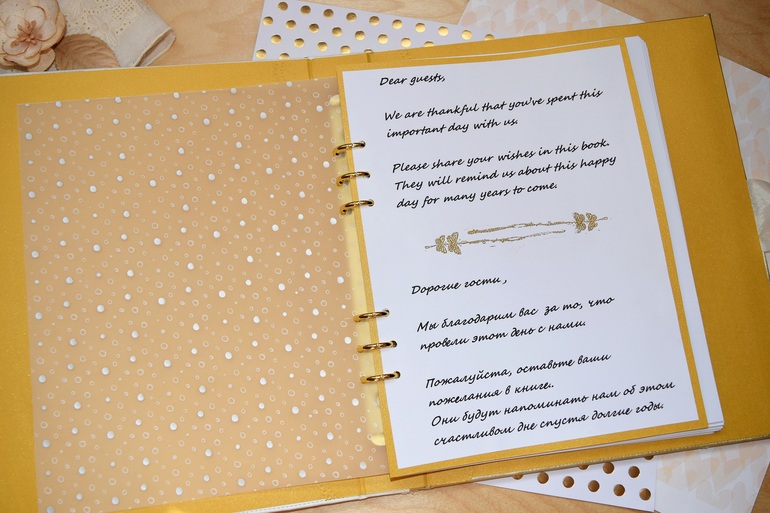 Dear guests,
We are thankful that you've spent this
important day with us.
Please share your wishes in this book.
They will remind us about this happy
day for many years to come.
Дорогие гости,
Мы благодарим вас за то, что
провели этот день с нами.
Пожалуйста, оставьте ваши
пожелания в книге.
Они будут напоминать нам об этом
счастливом дне спустя долгие годы.